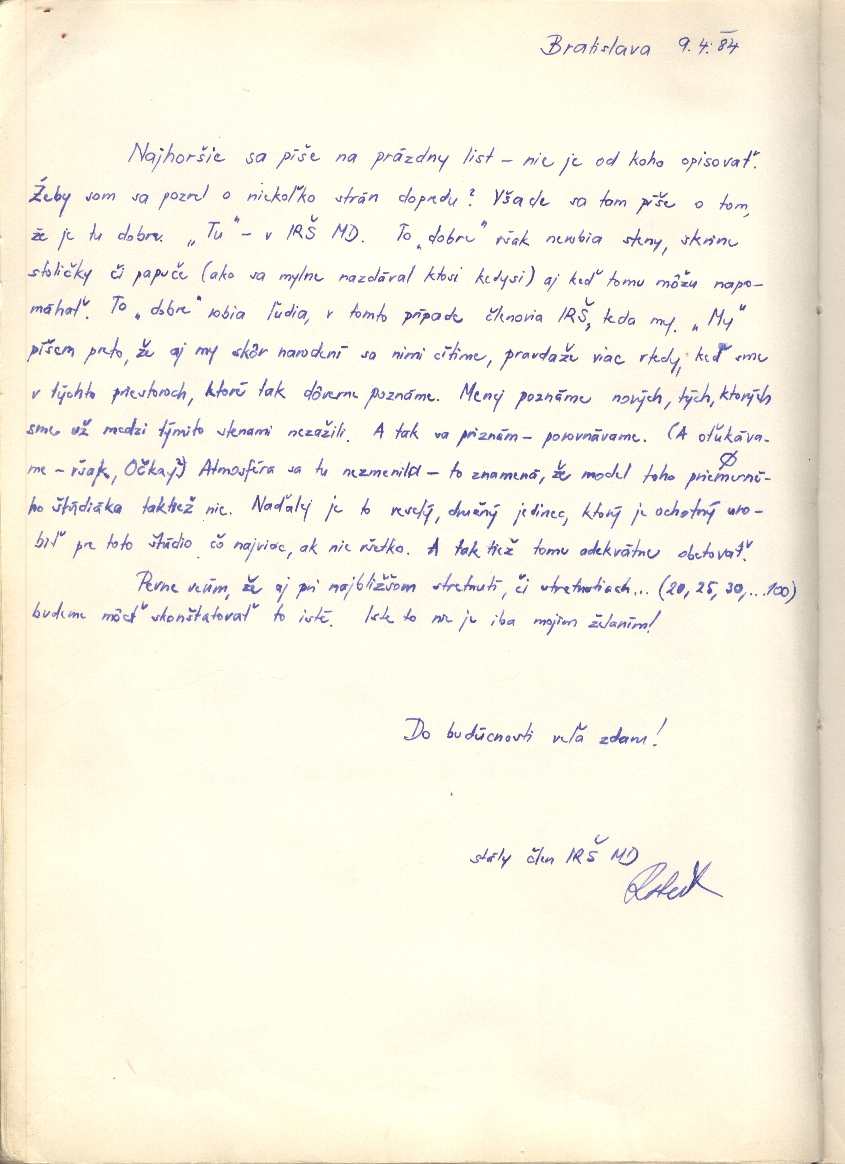 Bratislava 9.4.84
Najhoršie sa píše na prázdny list – nie je od koho opisovať.
Žeby som sa pozrel o niekoľko strán dopredu? Všade sa tam píše o tom,
že je tu dobre. „Tu“ – v IRŠ MD. To „dobre“ však nerobia steny, skrine
stoličky či papuče (ako sa mylne nazdával ktosi kedysi) aj keď tomu môžu napo-
máhať. To „dobre“ robia ľudia, v tomto prípade členovia IRŠ, teda my. „My“
píšem preto, že aj my skôr narodení sa nimi cítime, pravdaže viac vtedy, keď sme
v týchto priestoroch, ktoré tak dôverne poznáme. Menej poznáme nových, tých, ktorých
sme už medzi týmito stenami nezažili. A tak sa priznám – porovnávame. (A oťukáva-
me – však, Očkay?) Atmosféra sa tu nezmenila – to znamená, že model toho priemerné-
Ø
ho študiáka taktiež nie. Naďalej je to veselý, družný jedinec, ktorý je ochotný uro-
biť pre toto štúdio čo najviac, ak nie všetko. A tak tiež tomu adekvátne obetovať.
Pevne verím, že aj pri najbližšom stretnutí, či stretnutiach... (20, 25, 30, ...100)
budeme môcť skonštatovať to isté. Iste to nie je iba mojim želaním!
Do budúcnosti veľa zdaru!
stály člen IRŠ MD